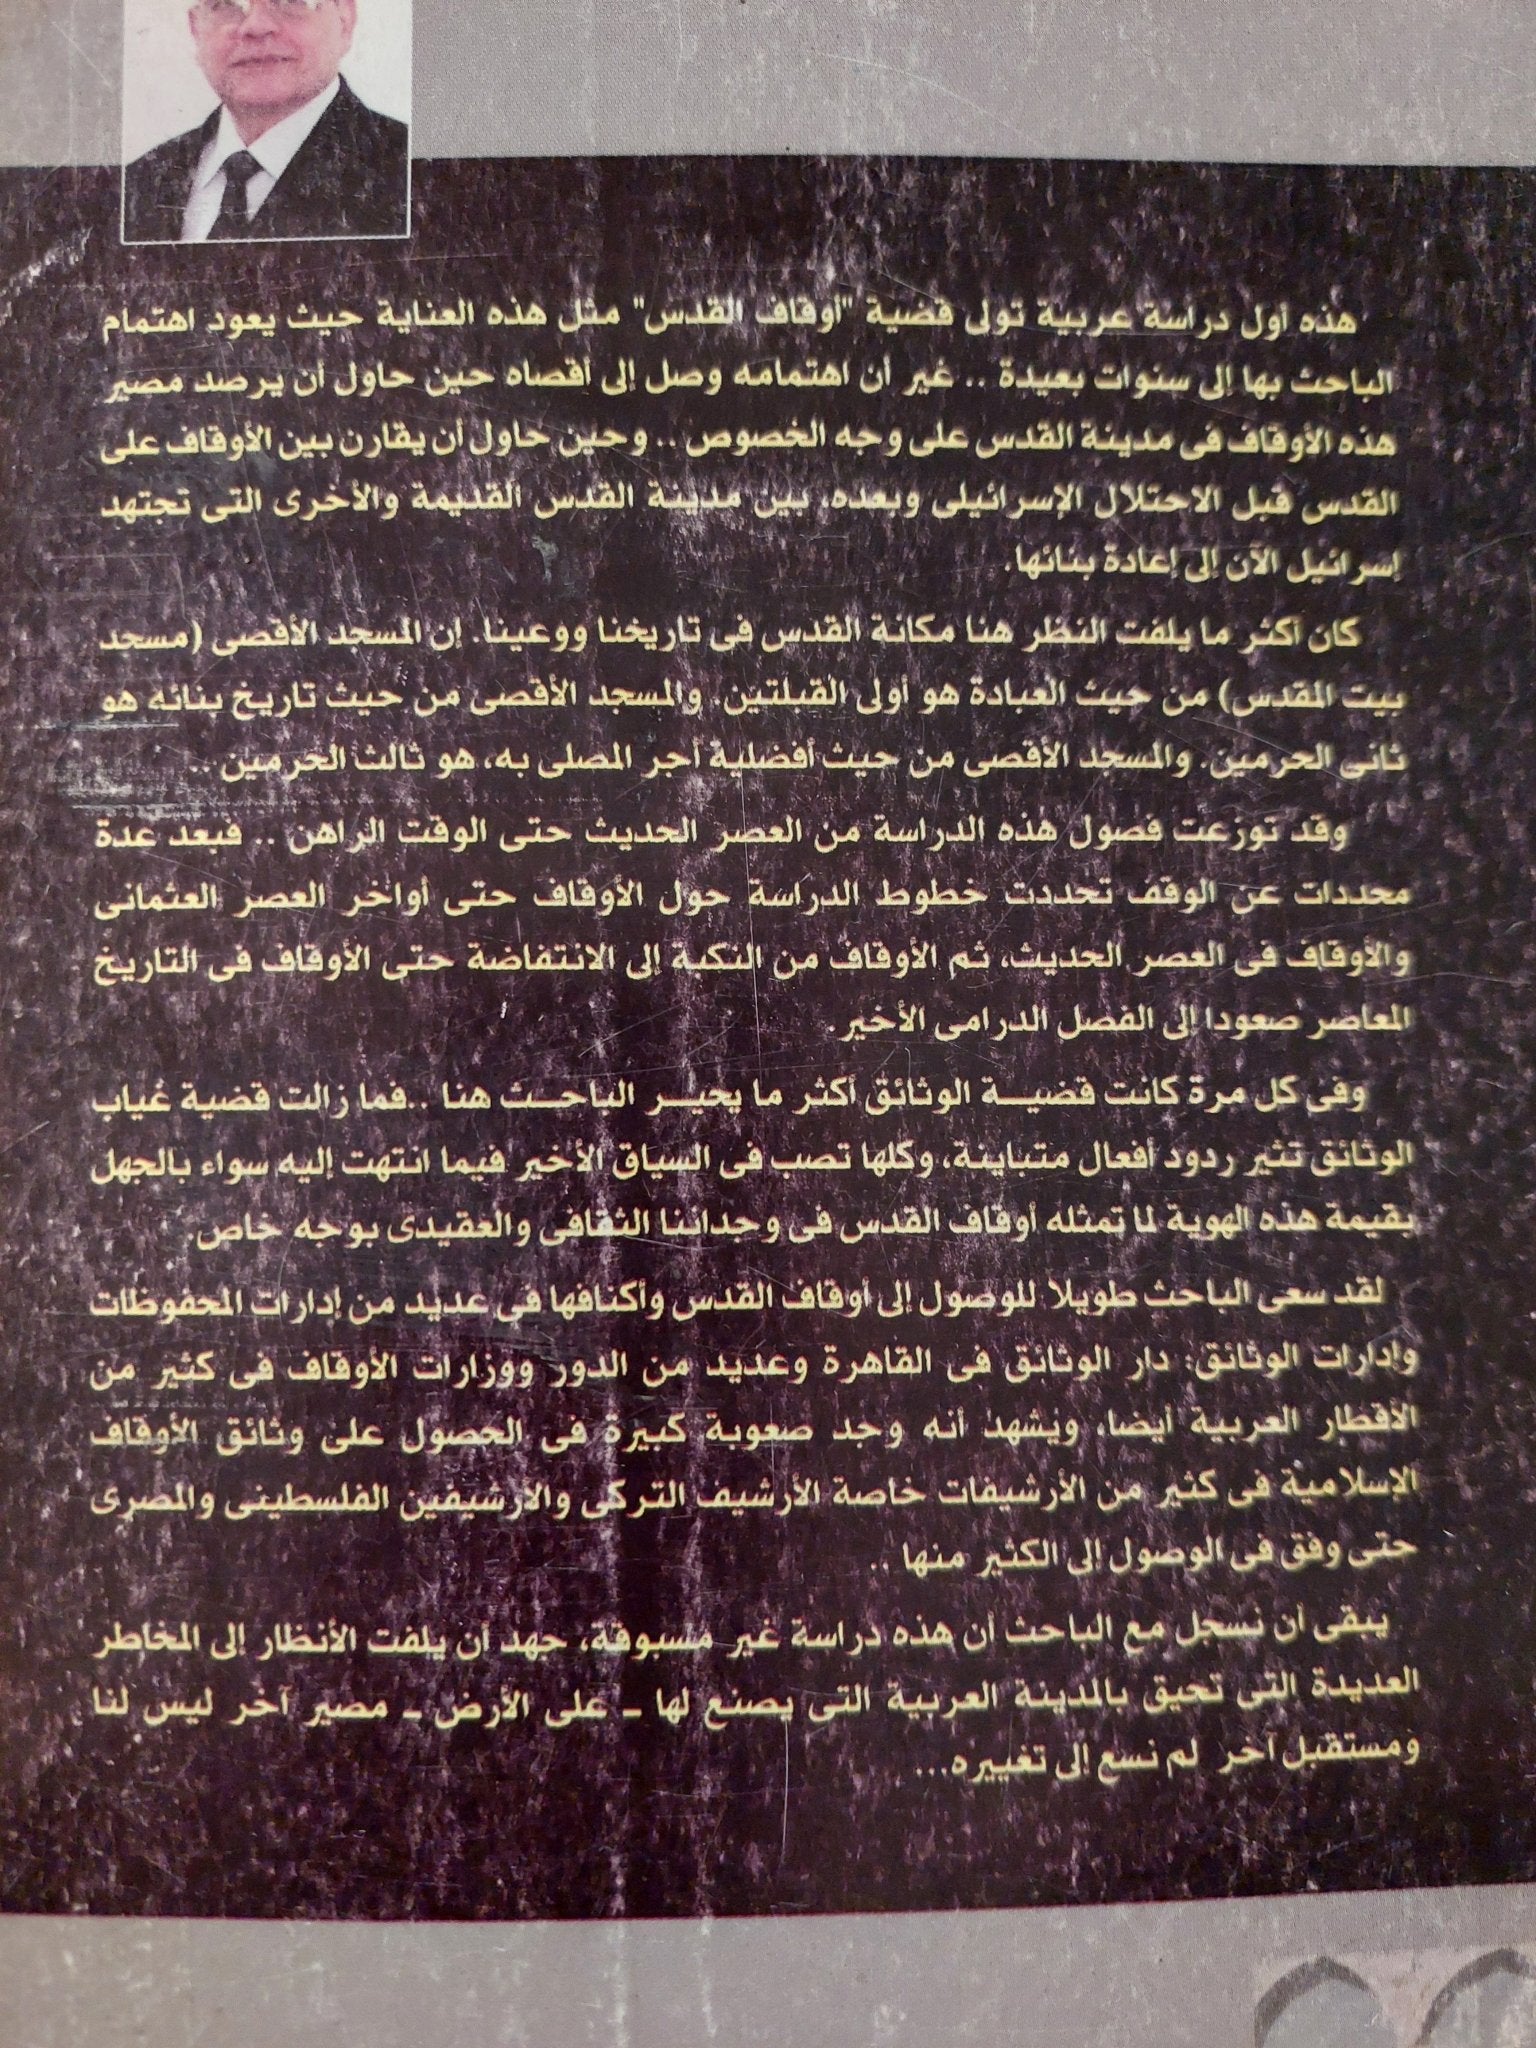 هذه أول دراسة عربية تولى قضية "أوقاف القدس" مثل هذه العناية حيث يعود اهتمام
الباحث بها إلى سنوات بعيدة .. غير أن اهتمامه وصل إلى أقصاه حين حاول أن يرصد مصير
هذه الأوقاف فى مدينة القدس على وجه الخصوص .. وحين حاول أن يقارن بين الأوقاف على
القدس قبل الاحتلال الإسرائيلى وبعده، بين مدينة القدس القديمة والأخرى التى تجتهد
إسرائيل الآن إلى إعادة بنائها.
كان أكثر ما يلفت النظر هنا مكانة القدس فى تاريخنا ووعينا. إن المسجد الأقصى (مسجد
بيت المقدس) من حيث العبادة هو أولى القبلتين. والمسجد الأقصى من حيث تاريخ بنائه هو
ثانى الحرمين. والمسجد الأقصى من حيث أفضلية أجر المصلى به، هو ثالث الحرمين ..
وقد توزعت فصول هذه الدراسة من العصر الحديث حتى الوقت الراهن .. فبعد عدة
محددات عن الوقف تحددت خطوط الدراسة حول الأوقاف حتى أواخر العصر العثمانى
والأوقاف فى العصر الحديث، ثم الأوقاف من النكبة إلى الانتفاضة حتى الأوقاف فى التاريخ
المعاصر صعودا إلى الفصل الدرامى الأخير.
وفى كل مرة كانت قضية الوثائق أكثر ما يحير الباحث هنا ..فما زالت قضية غياب
الوثائق تثير ردود أفعال متباينة، وكلها تصب فى السياق الأخير فيما انتهت إليه سواء بالجهل
بقيمة هذه الهوية لما تمثله أوقاف القدس فى وجداننا الثقافى والعقيدى بوجه خاص.
لقد سعى الباحث طويلا للوصول إلى أوقاف القدس وأكنافها فى عديد من إدارات المحفوظات
وإدارات الوثائق: دار الوثائق فى القاهرة وعديد من الدور ووزارات الأوقاف فى كثير من
الأقطار العربية أيضا، ويشهد أنه وجد صعوبة كبيرة فى الحصول على وثائق الأوقاف
الإسلامية فى كثير من الأرشيفات خاصة الأرشيف التركى والارشيفين الفلسطينى والمصرى
حتى وفق فى الوصول إلى الكثير منها ..
يبقى أن نسجل مع الباحث أن هذه دراسة غير مسبوقة، جهد أن يلفت الأنظار إلى المخاطر
العديدة التى تحيق بالمدينة العربية التى يصنع لها ـ على الأرض ـ مصير آخر ليس لنا
ومستقبل آخر لم نسع إلى تغييره...